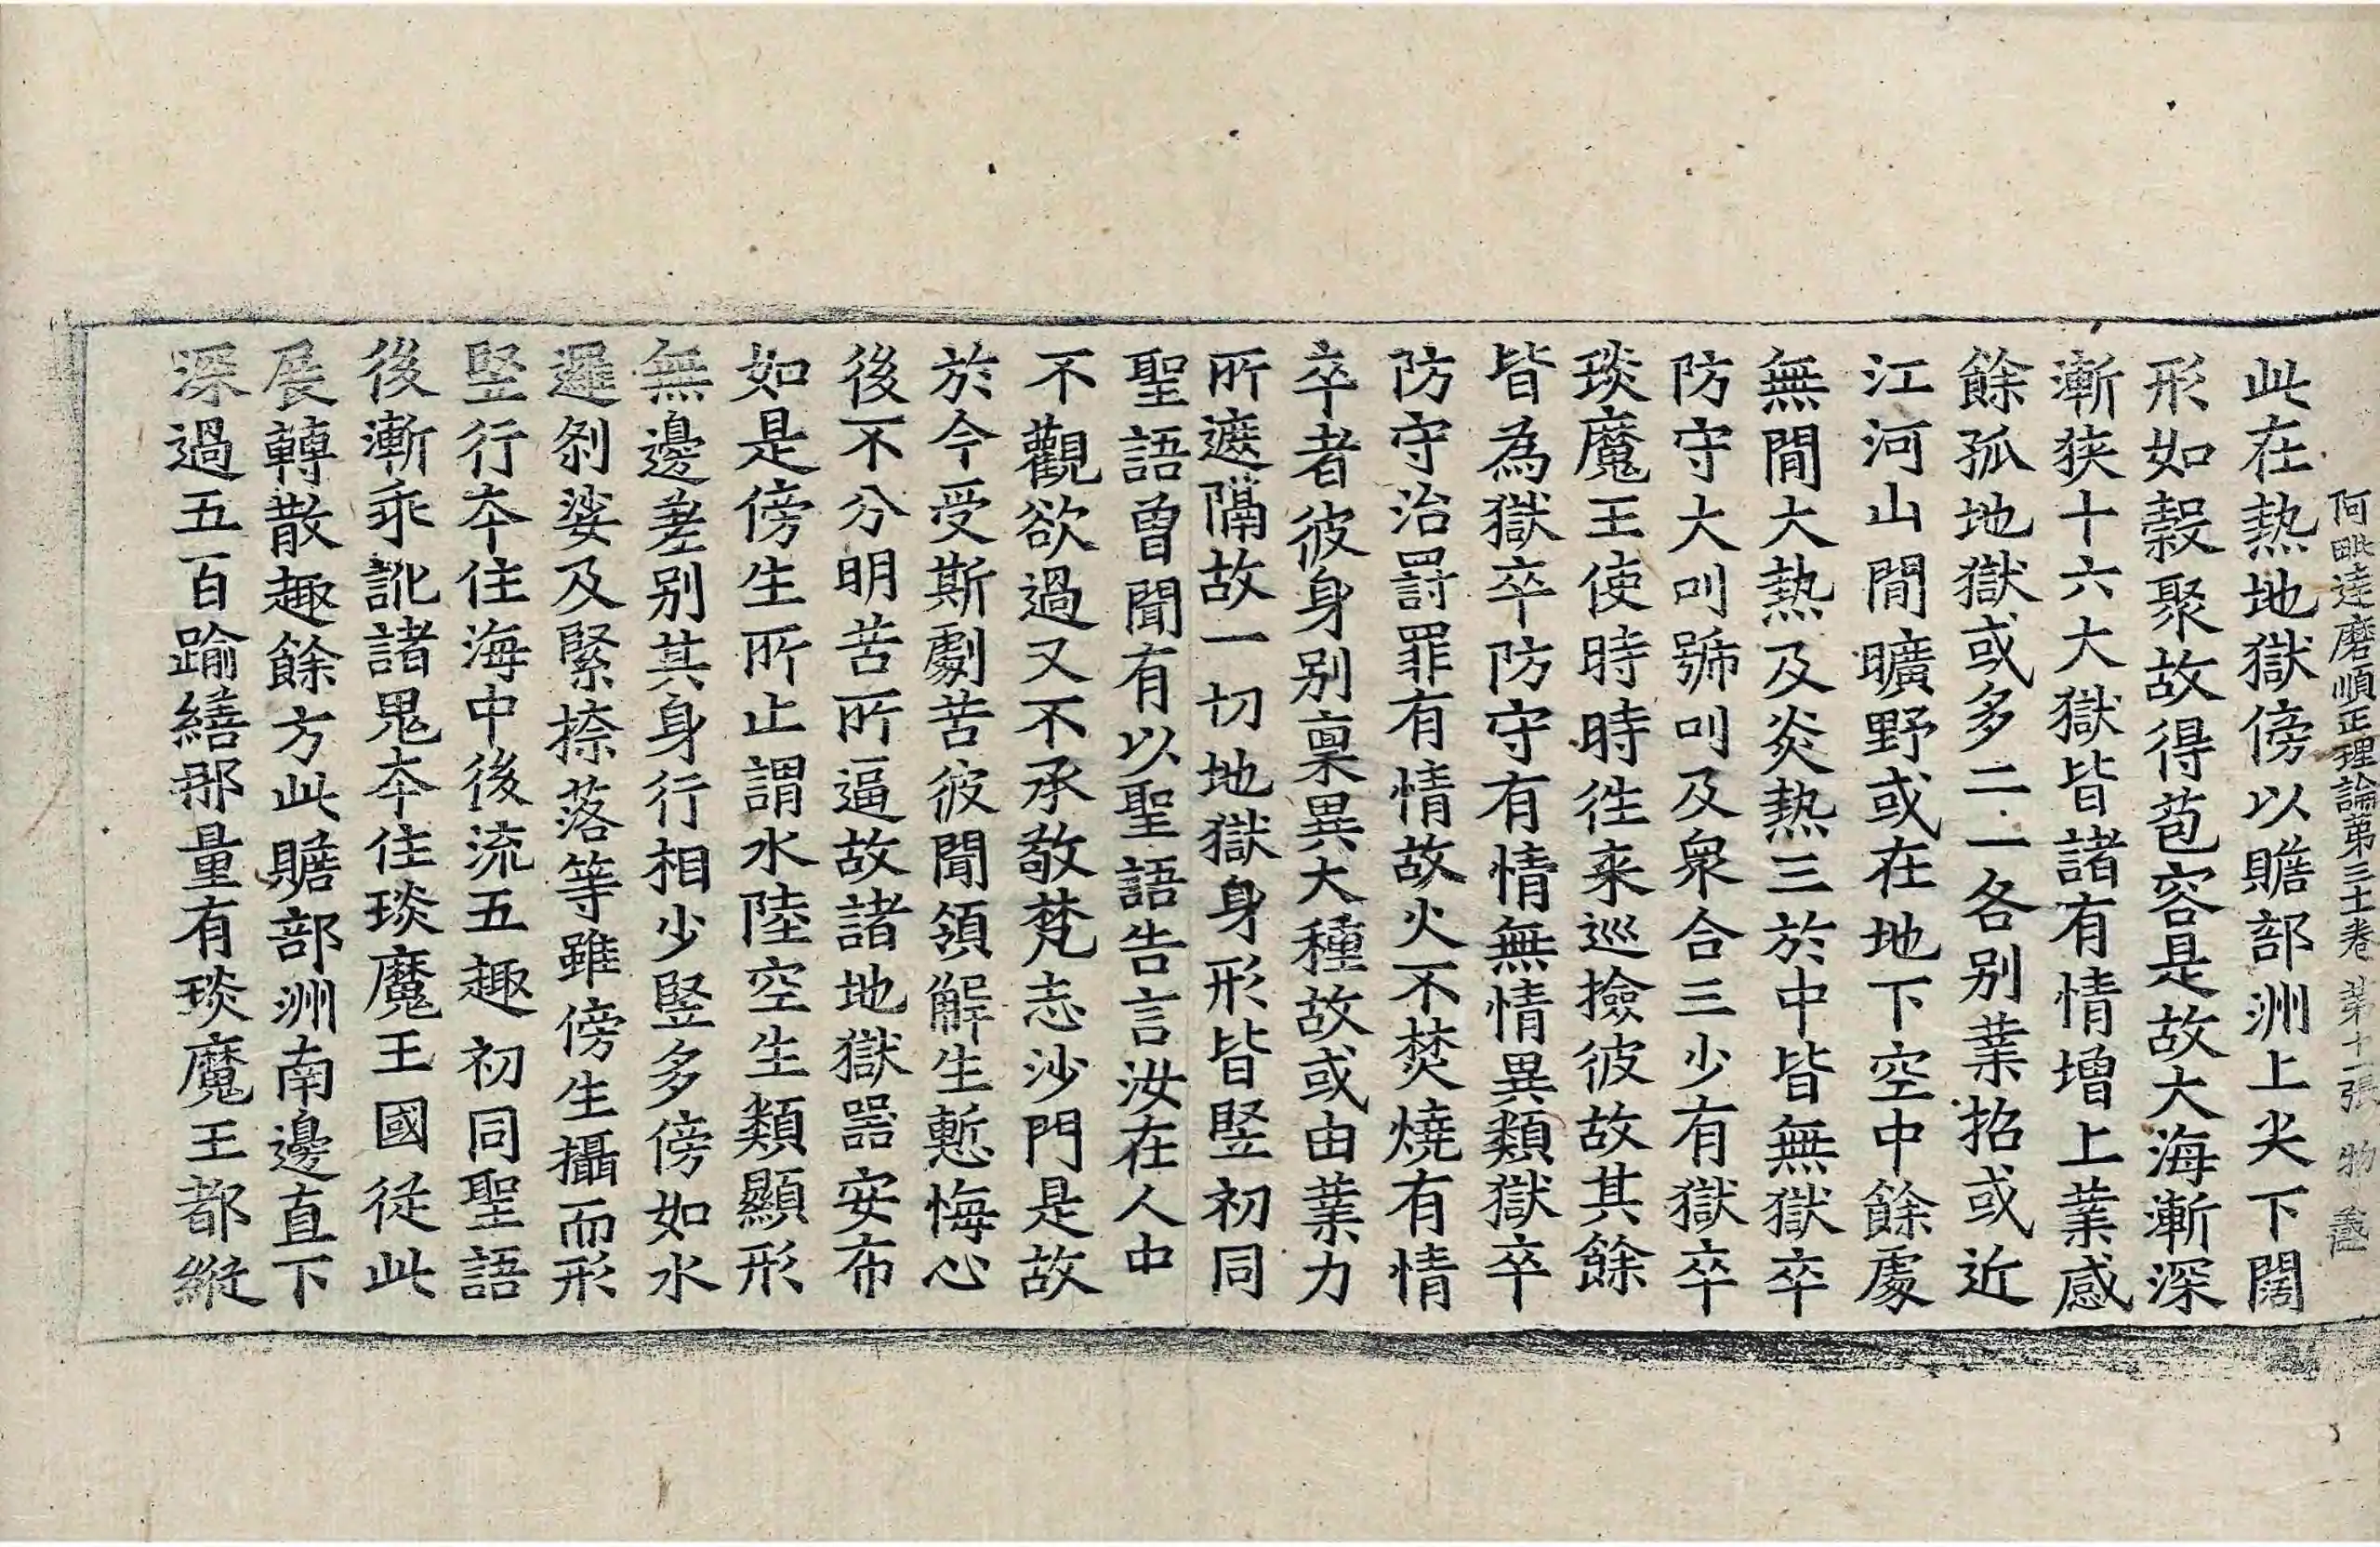 阿毗達磨順正理論第三十一卷 第十一張 物
此在熱地獄傍以贍部洲上尖下闊
形如穀聚故得苞容是故大海漸深
漸狹十六大獄皆諸有情增上業感
餘孤地獄或多二一各別業招或近
江河山間曠野或在地下空中餘處
無間大熱及炎熱三於中皆無獄卒
防守大叫號叫及衆合三少有獄卒
琰魔王使時時往来巡撿彼故其餘
皆為獄卒防守有情無情異類獄卒
防守治罰罪有情故火不焚燒有情
卒者彼身別稟異大種故或由業力
所遮隔故一切地獄身形皆竪初同
聖語曾聞有以聖語告言汝在人中
不觀欲過又不承敬梵志沙門是故
於今受斯劇苦彼聞領解生慙悔心
後不分明苦所逼故諸地獄器安布
如是傍生所止謂水陸空生類顯形
無邊差別其身行相少竪多傍如水
邏剎娑及緊捺落等雖傍生攝而形
竪行本住海中後流五趣初同聖語
後漸乖訛諸鬼本住琰魔王國從此
展轉散趣餘方此贍部洲南邊直下
深過五百踰繕那量有琰魔王都縱